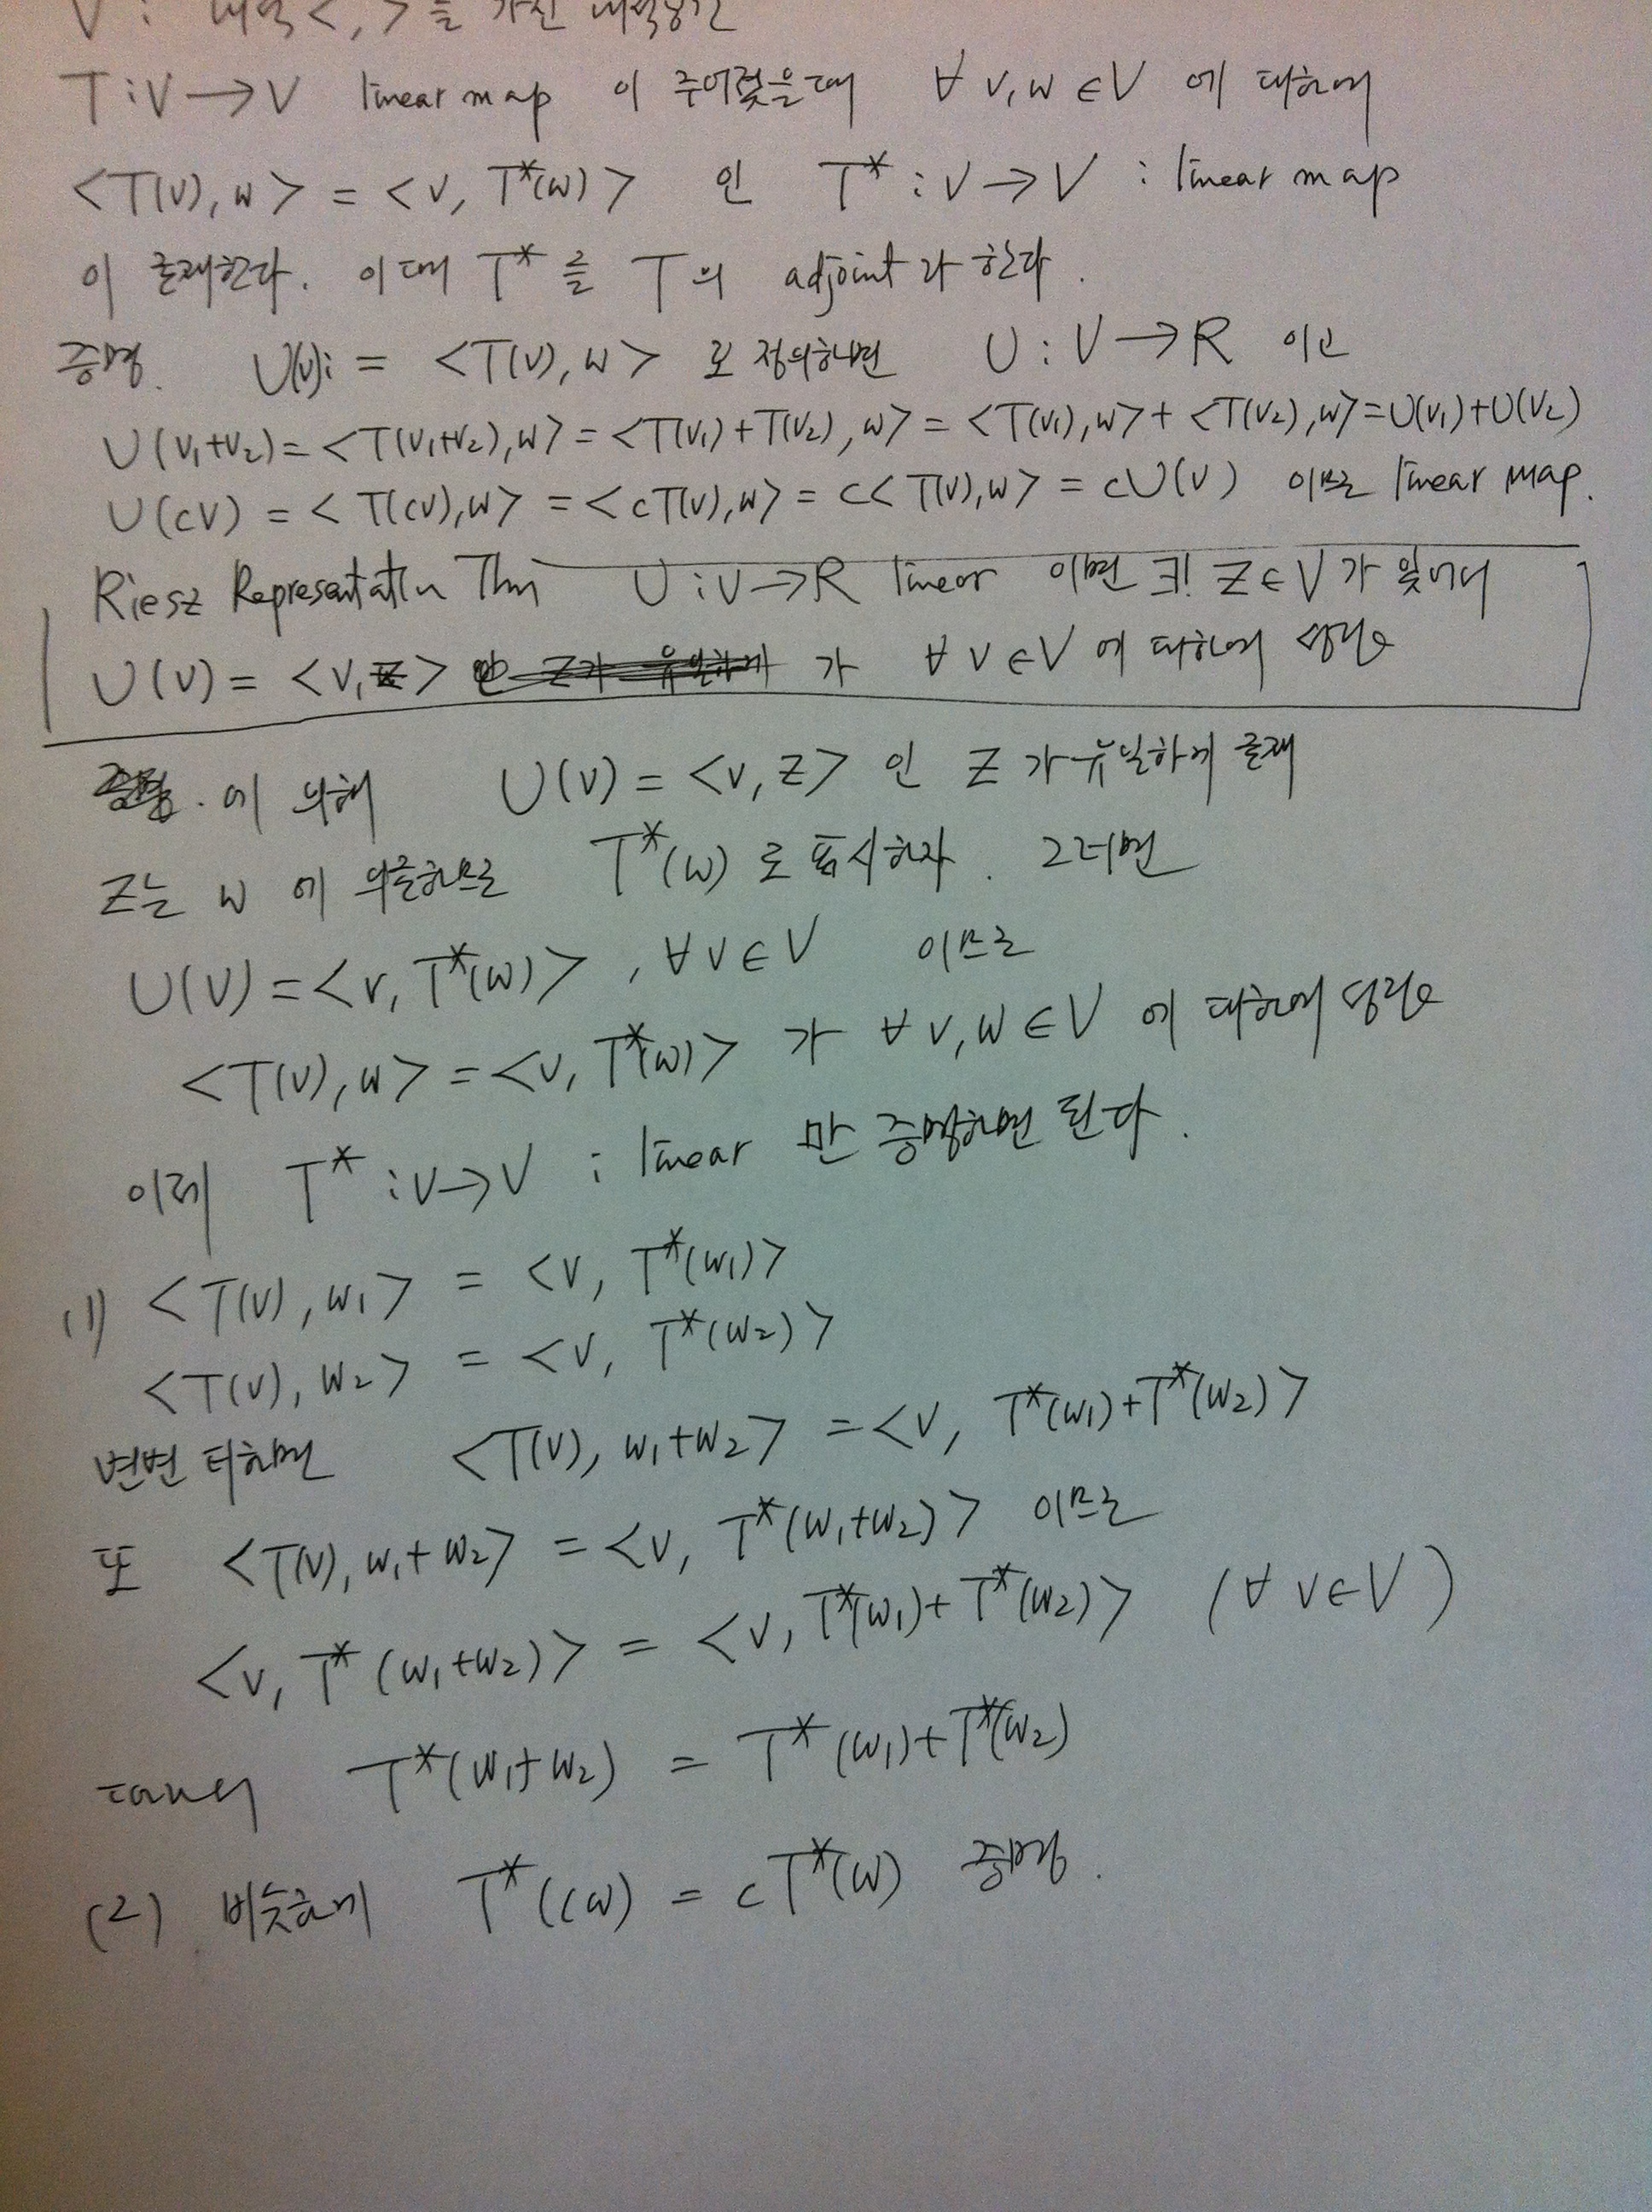 V : 내적 < , > 를 가진 내적공간
T : V → V linear map 이 주어졌을때 ∀ v, w ∈ V 에 대하여
< T(v), w > = < v, T*(w) > 인 T* : V → V : linear map
이 존재한다. 이때 T* 를 T 의 adjoint 라 한다.
증명. U(v) := < T(v), w > 로 정의하면 U : V → R 이고
U(v₁+v₂) = < T(v₁+v₂), w > = < T(v₁) + T(v₂), w > = < T(v₁), w > + < T(v₂), w > = U(v₁) + U(v₂)
U(cv) = < T(cv), w > = < cT(v), w > = c < T(v), w > = cU(v) 이므로 linear map.
Riesz Representation Thm U : V → R linear 이면 ∃! z ∈ V 가 있어서
U(v) = < v, z > 가 ∀ v ∈ V 에 대하여 성립
에 의해 U(v) = < v, z > 인 z 가 유일하게 존재
z는 w 에 의존하므로 T*(w) 로 표시하자. 그러면
U(v) = < v, T*(w) > , ∀ v ∈ V 이므로
< T(v), w > = < v, T*(w) > 가 ∀ v, w ∈ V 에 대하여 성립
이제 T* : V → V : linear 만 증명하면 된다.
(1) < T(v), w₁ > = < v, T*(w₁) >
< T(v), w₂ > = < v, T*(w₂) >
변변 더하면 < T(v), w₁+w₂ > = < v, T*(w₁) + T*(w₂) >
또 < T(v), w₁+w₂ > = < v, T*(w₁+w₂) > 이므로
< v, T*(w₁+w₂) > = < v, T*(w₁) + T*(w₂) > ( ∀ v ∈ V )
따라서 T*(w₁+w₂) = T*(w₁) + T*(w₂)
(2) 비슷하게 T*(cw) = cT*(w) 증명.